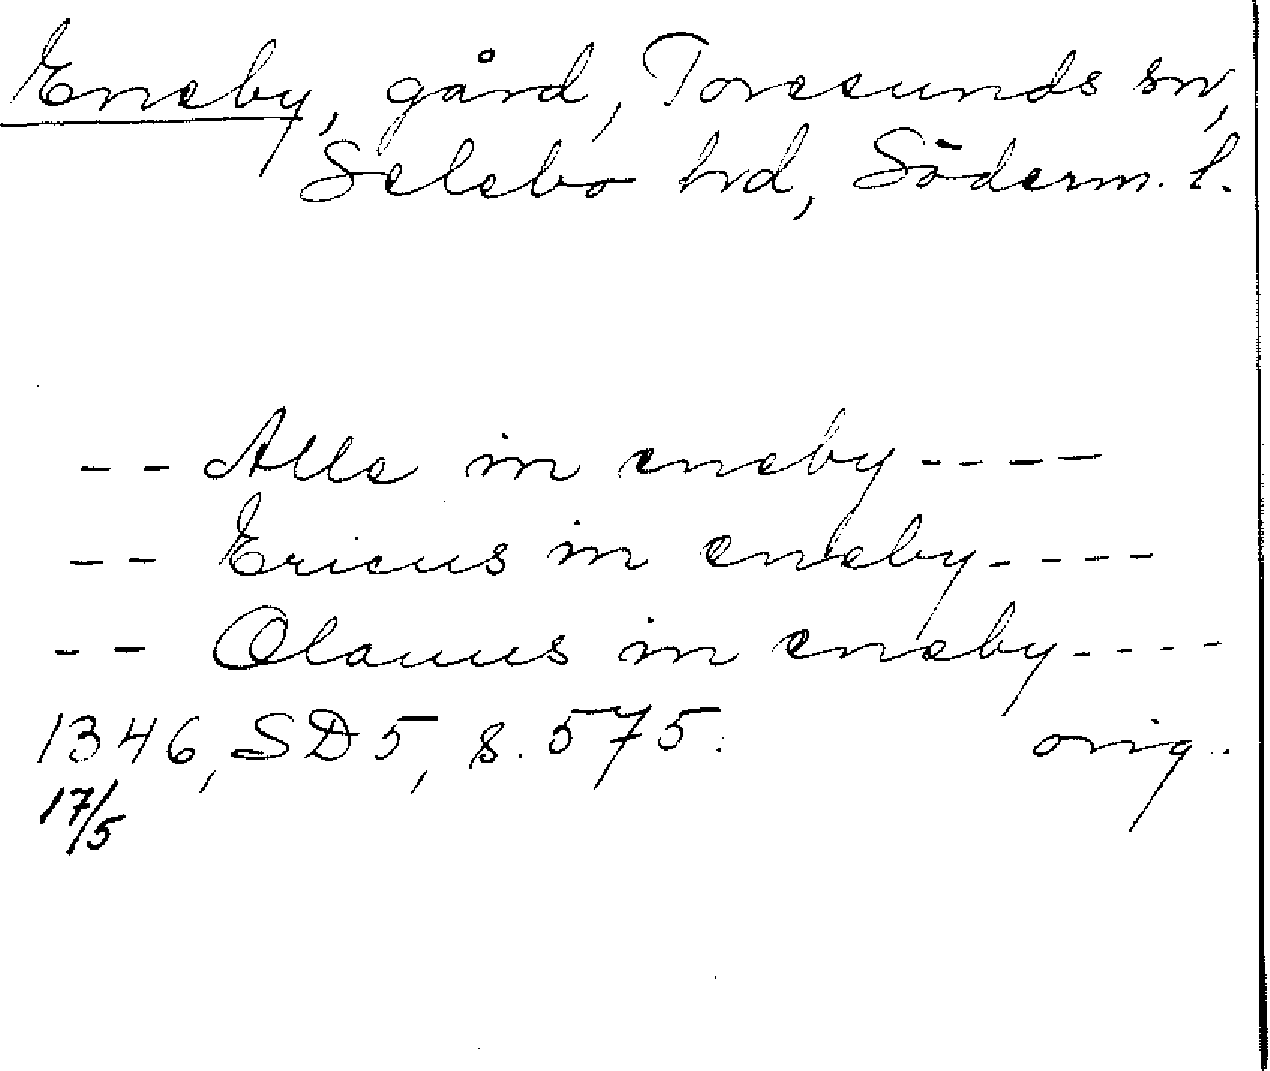 Eneby, gård, Toresunds sn,
Selebo hd, Söderm. l.
-- Alle in eneby ----
-- Ericus in eneby ----
-- Olauus in eneby ----
1346, SD 5, s. 575. orig.
17/5